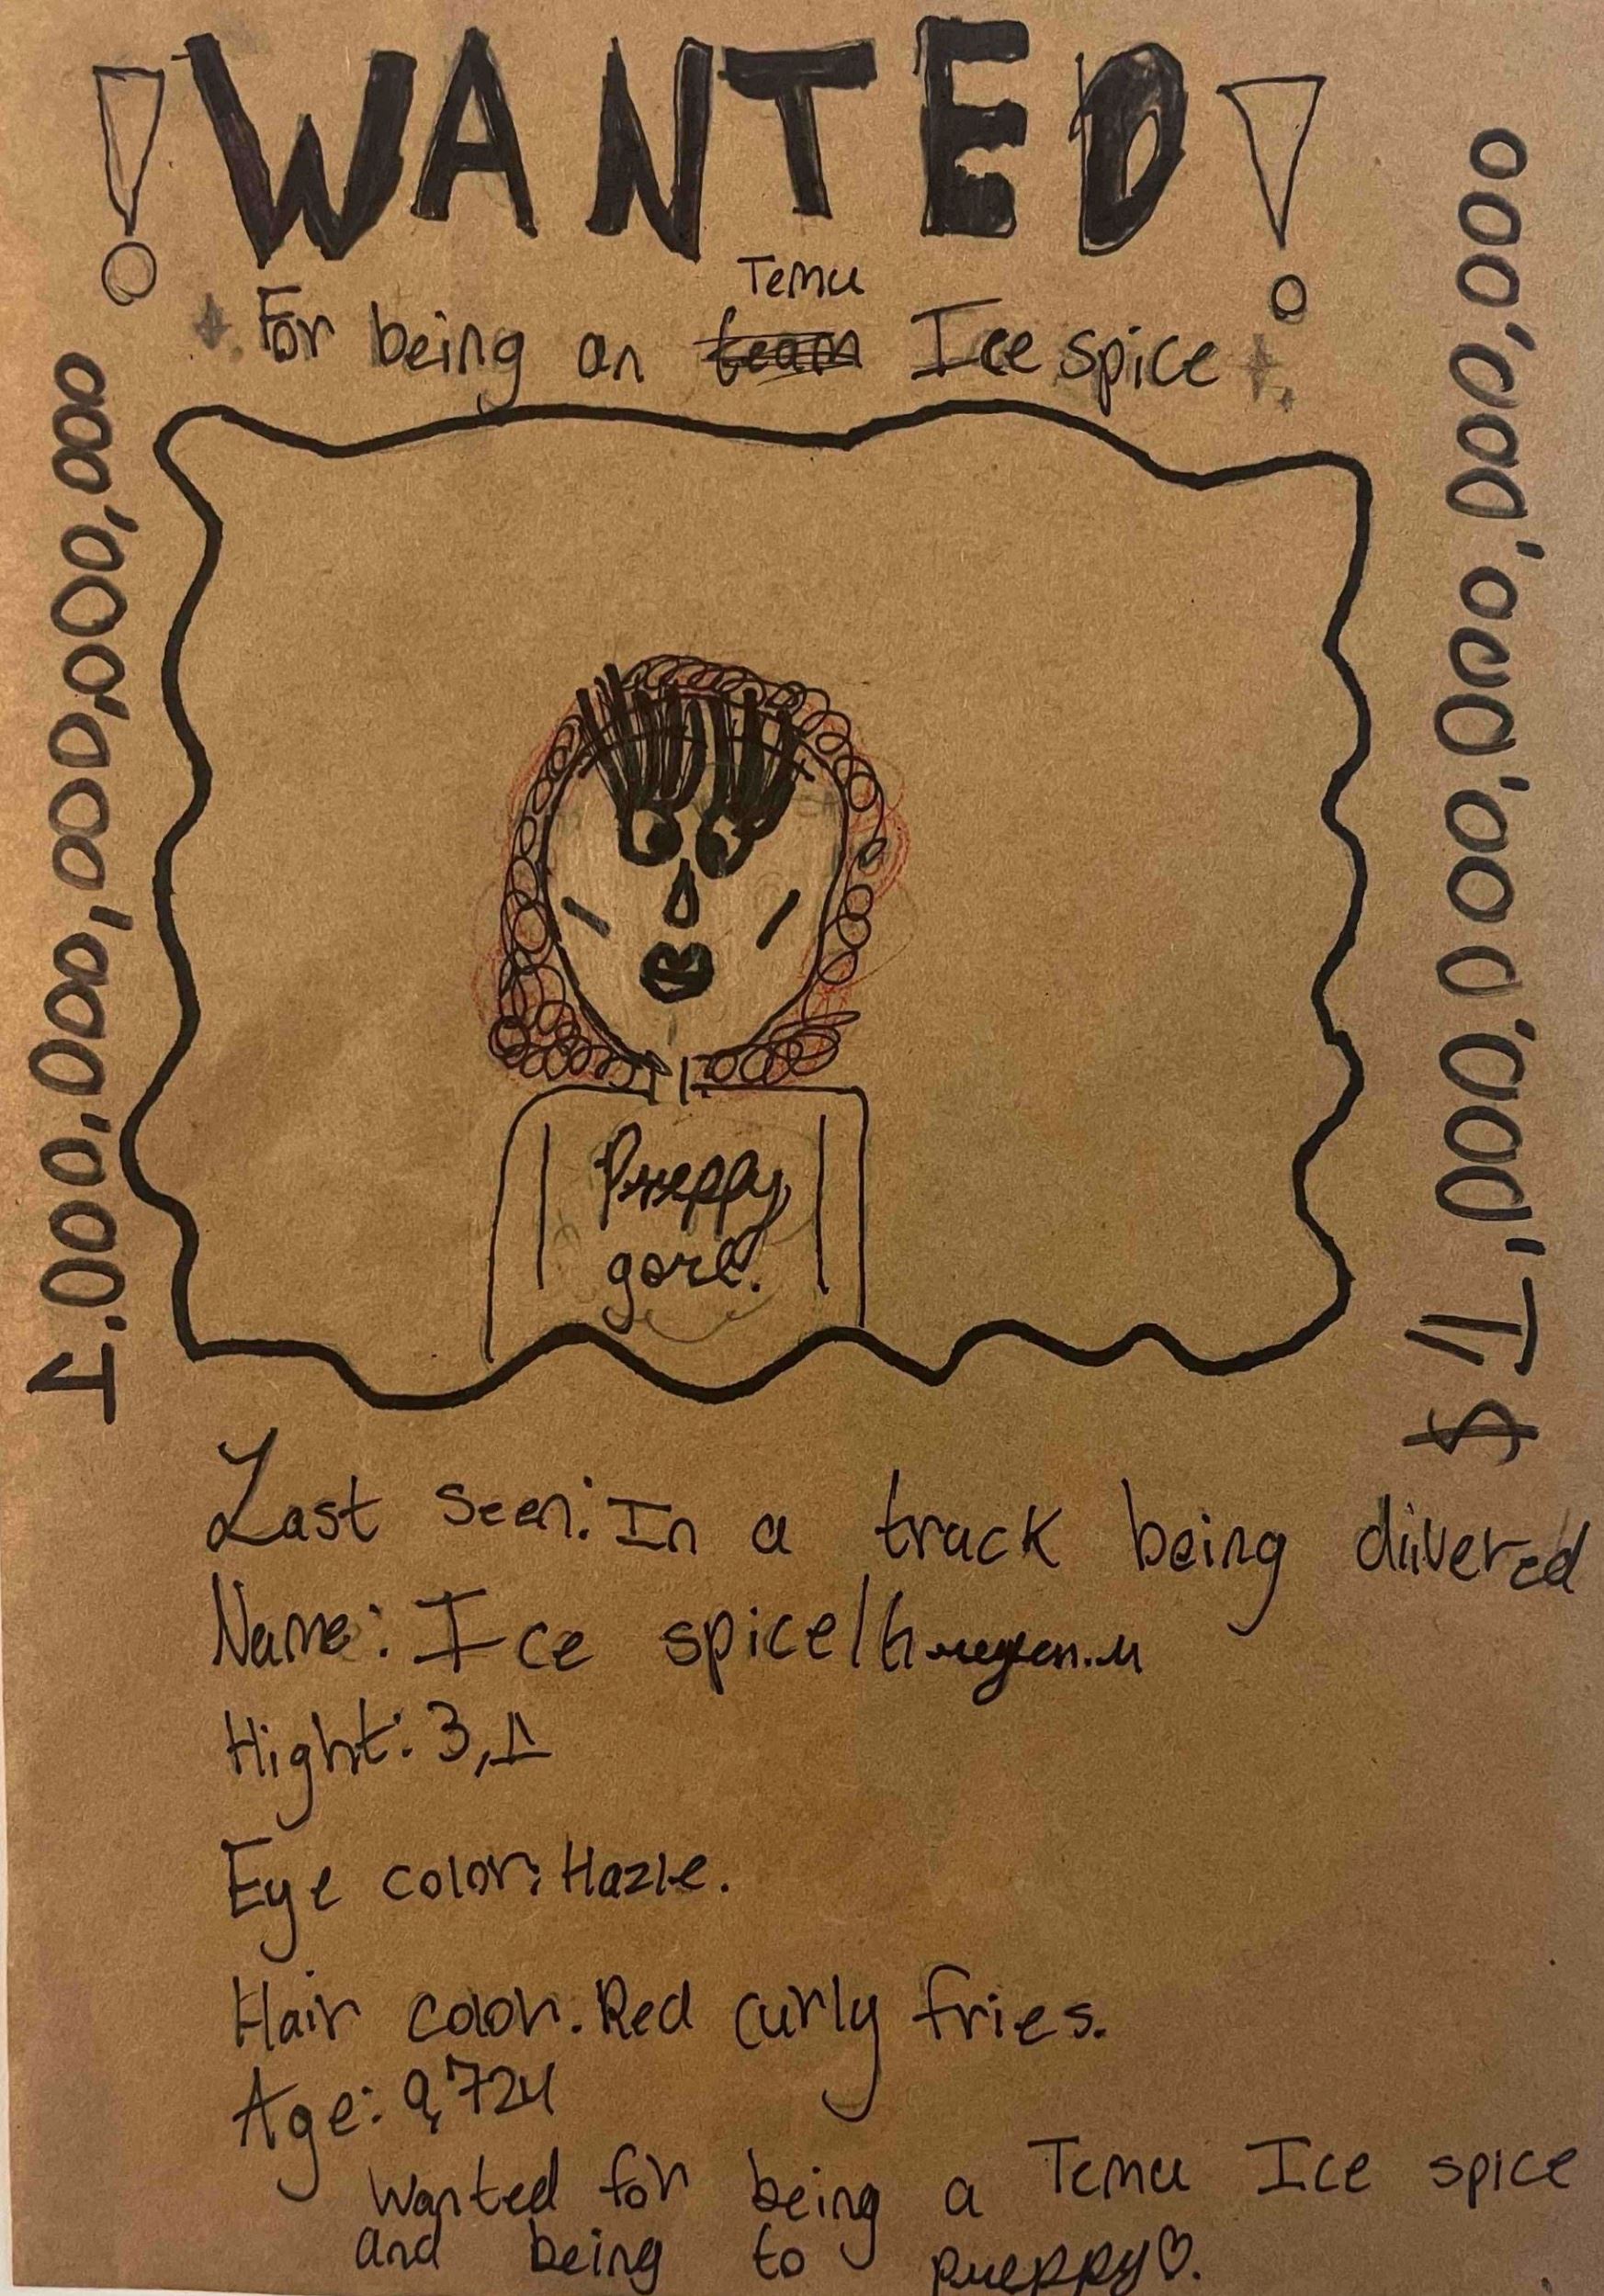 !WANTED!
Temu
For being an team Ice spice
1.000,000,000,000,000,000,000
Preppy
gorl.
Last seen: In a track being diivered
Name: Ice spice/
Hight: 3,1
Eye color: Hazle.
Hair color. Red curly fries.
Age: 9,724
Wanted for being a Temu Ice spice
and being to preppy♡.